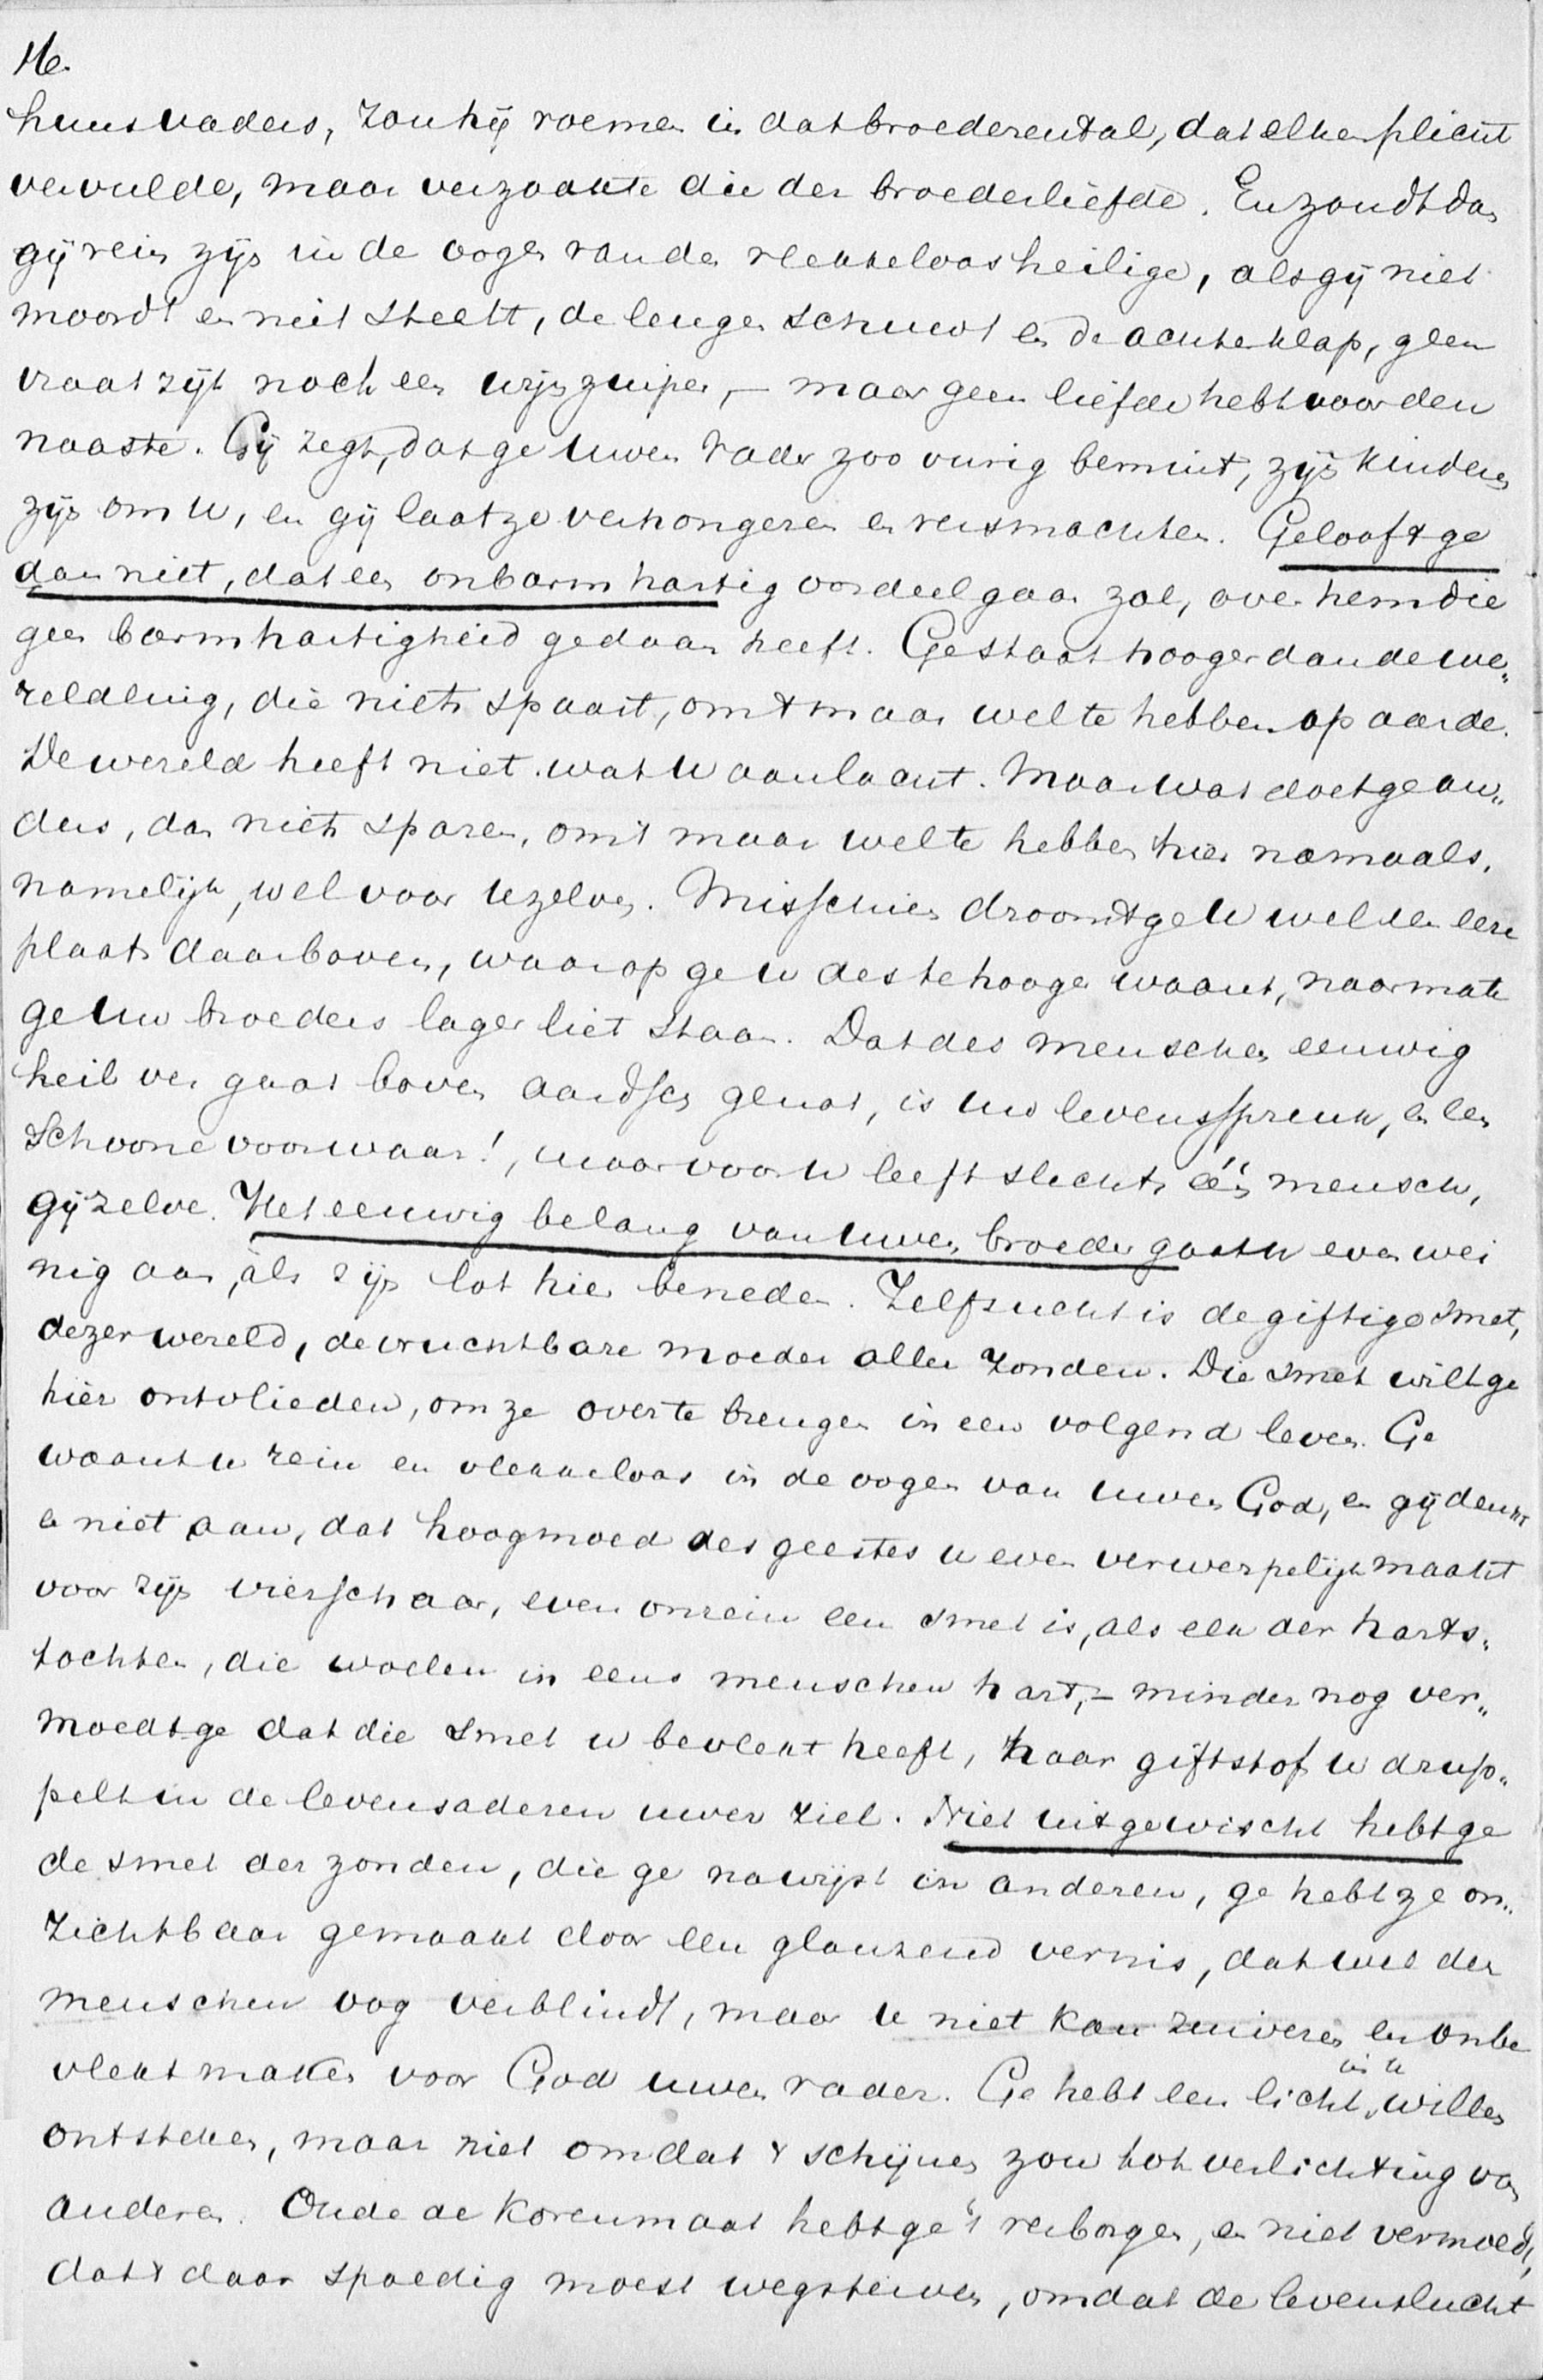 16.
huns vaders, zou hij roemen in dat broederental, dat elken plicht
vervulde, maar verzaakte die der broederliefde. En zoudt dan
gij rein zijn in de oogen van den vlekkeloos heilige, als gij niet
moordt en niet steelt, de leugen schuwt en de achterklap, geen
vraat zijt noch een wijnzuiper, – maar geen liefde hebt voor den
naaste. Gij zegt, dat ge uwen Vader zoo vurig bemint, zijn kinderen
zijn om u, en gij laat ze verhongeren en versmachten. Gelooft ge
dan niet, dat een onbarmhartig oordeel gaan zal, over hem die
geen barmhartigheid gedaan heeft. Ge staat hooger dan de we„
reldling, die niets spaart, om 't maar wel te hebben op aarde.
De wereld heeft niet wat u aanlacht. Maar wat doet ge an„
ders, dan niets sparen, om 't maar wel te hebben hier namaals,
namelijk, wel voor uzelven. Misschien droomt ge u wel een eere
plaats daarboven, waarop ge u des te hooger waant, naarmate
ge uw broeders lager liet staan. Dat des menschen eeuwig
heil ver gaat boven aardsch genot, is uw levensspreuk, en een
schoone voorwaar!, maar voor u leeft slechts één mensch,
gij zelve. Het eeuwig belang van uwen broeder gaat u even wei
nig aan, als zijn lot hier beneden. Zelfzucht is de giftige smet,
dezer wereld, de vruchtbare moeder aller zonden. Die smet wilt ge
hier ontvlieden, om ze over te brengen in een volgend leven. Ge
waant u rein en vlekkeloos in de oogen van uwen God, en gij denkt
er niet aan, dat hoogmoed des geestes u even verwerpelijk maakt
voor zijn vierschaar, even onrein een smet is, als een der harts„
tochten, die woelen in eens menschen hart, – minder nog ver„
moedt ge dat die smet u bevlekt heeft, haar giftstof u drup„
pelt in de levensaderen uwer ziel. Niet uitgewischt hebt ge
de smet der zonden, die ge nawijst in anderen, ge hebt ze on„
zichtbaar gemaakt door een glanzend vernis, dat wel der
menschen oog verblindt, maar u niet kan zuiveren en onbe
vlekt maken voor God uwen vader. Ge hebt een licht in u willen
ontsteken, maar niet omdat 't schijnen zou tot verlichting van
anderen. Onder de korenmaat hebt ge 't verborgen, en niet vermoedt,
dat 't daar spoedig moest wegsterven, omdat de levenslucht